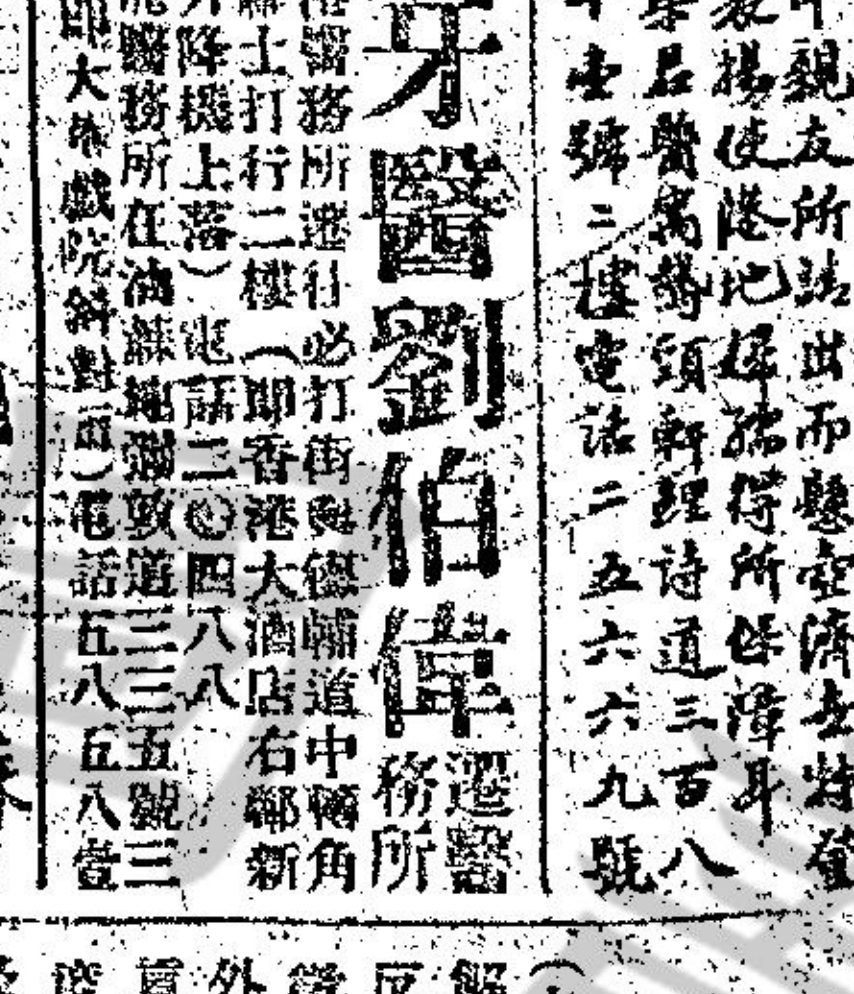 中親友所請出而懸壺濟世特登
表揚使港地婦孺得所保障耳
呂醫寓彎頭軒鯉詩道三百八
十壹號二樓電話二五六六九號
牙醫劉伯偉
遷醫
務所
醫務所遷往必打街與德輔道中轉角
士打行二樓(即香港大酒店右鄰新
升降機上落)電話二〇四八八
醫務所在油蔴地彌敦道三三五號三
即大華戲院斜對面)電話五八五八壹